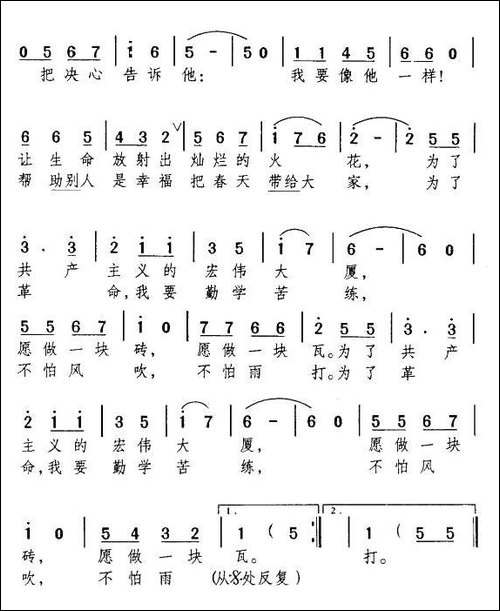 0 5 6 7 | i· 6 | 5 - | 5 0 | 1 1 4 5 | 6 6 0 |
把决心 告诉 他: 我要像他 一样!
6 6 5 | 4 3 2 ∨ | 5 6 7 | i 7 6 | 2̇ - | 2̇ 5 5 |
让生命 放射出 灿烂的 火 花, 为了
帮助别人 是幸福 把春天 带给大 家, 为了
3̇ · 3̇ | 2̇ i i | 3 5 | i 7 | 6 - | 6 0 |
共 产 主义的 宏伟 大 厦,
革 命,我要 勤学 苦 练,
5 5 6 7 | i 0 | 7 7 6 6 | 2̇ 5 5 | 3̇ · 3̇ |
愿做一块 砖, 愿做一块 瓦。为了 共 产
不怕风 吹, 不怕雨 打。为了 革
2̇ i i | 3 5 | i 7 | 6 - | 6 0 | 5 5 6 7 |
主义的 宏伟 大 厦, 愿做一块
命,我要 勤学 苦 练, 不怕风
1. 2.
i 0 | 5 4 3 2 | 1 ( 5 :‖ 1 ( 5 5 |
砖, 愿做一块 瓦。 打。
吹, 不怕雨 (从𝄋处反复)